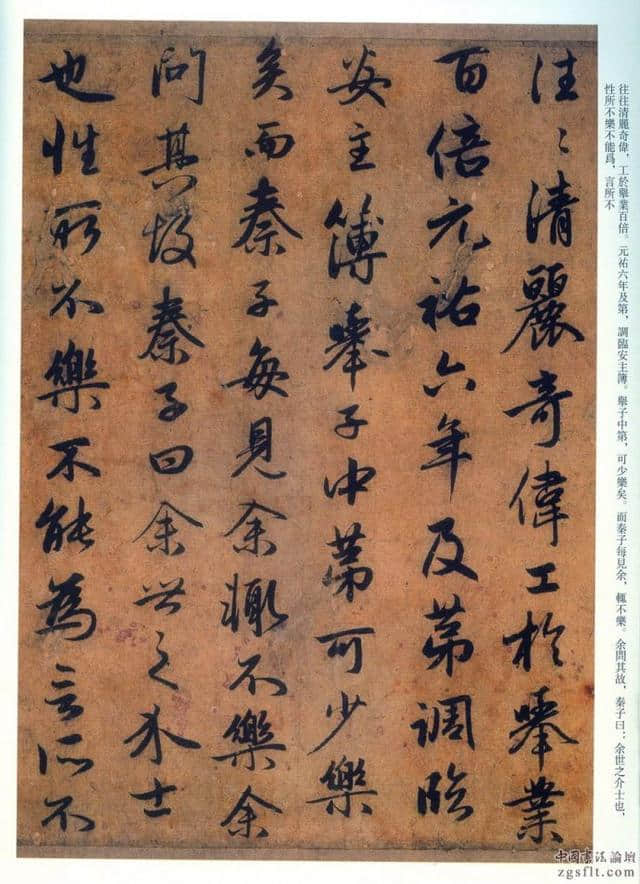 往〻清麗奇偉工於舉業
百倍元祐六年及第調臨
安主簿舉子中第可少樂
矣而秦子每見余輒不樂余
問其故秦子曰余世之介士
也性所不樂不能為言所不
往往清麗奇偉，工於舉業百倍。元祐六年及第，調臨安主簿。舉子中第，可少樂矣。而秦子每見余，輒不樂。余問其故，秦子曰：余世之介士也，
性所不樂不能爲，言所不
中國書法論壇
zgsflt.com